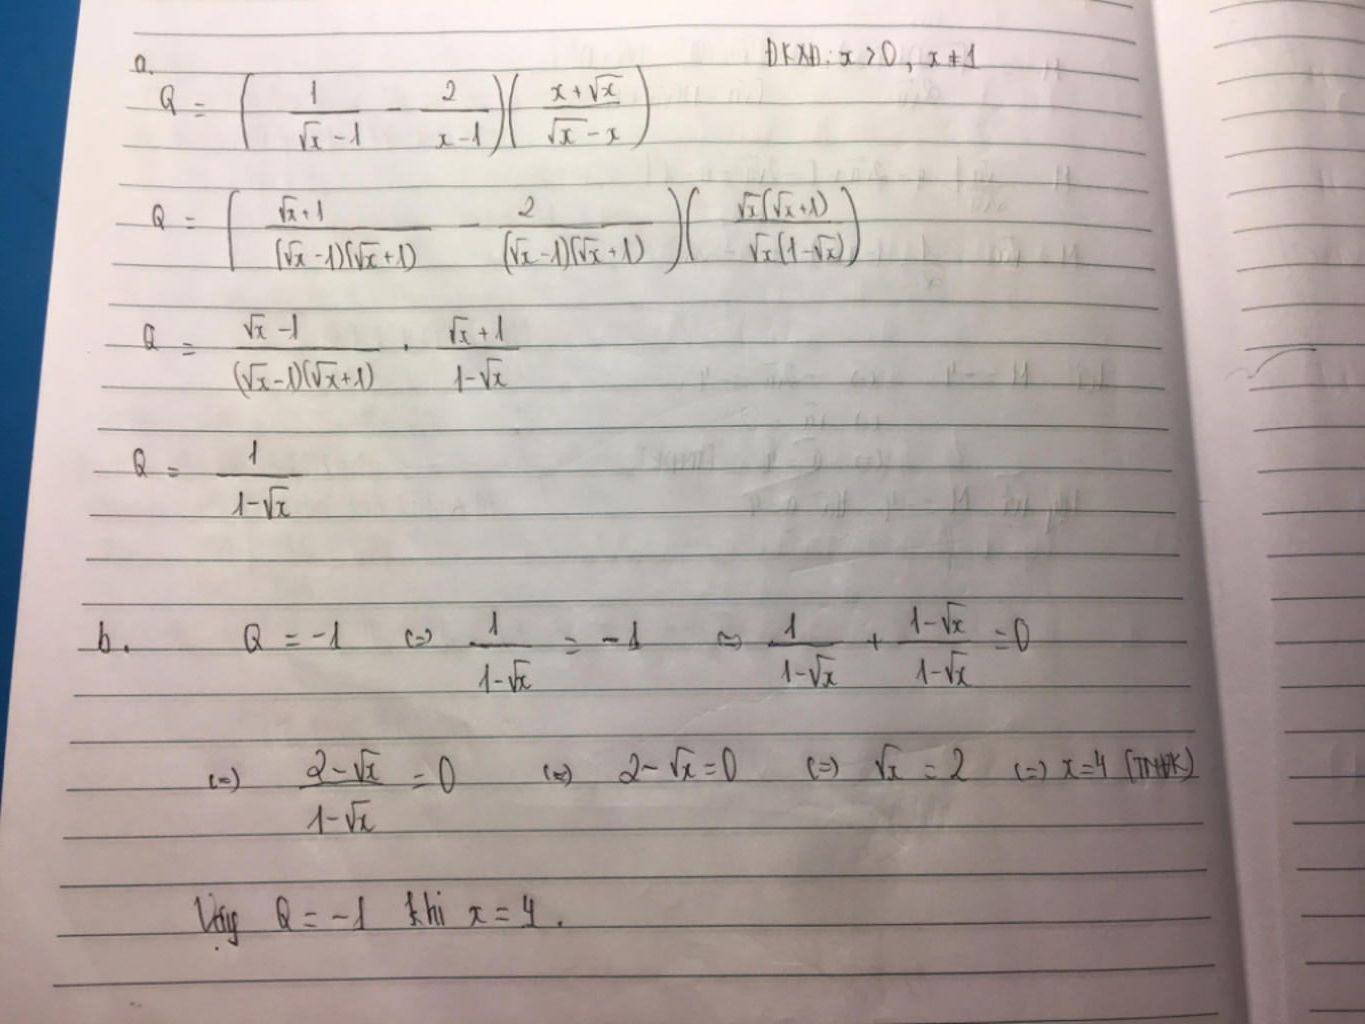 a.
ĐKXĐ: x > 0, x ≠ 1
Q = (1/(√x - 1) - 2/(x - 1))((x + √x)/(√x - x))
Q = ((√x + 1)/((√x - 1)(√x + 1)) - 2/((√x - 1)(√x + 1)))(√x(√x + 1)/(√x(1 - √x)))
Q = (√x - 1)/((√x - 1)(√x + 1)) . (√x + 1)/(1 - √x)
Q = 1/(1 - √x)
b. Q = -1 (=) 1/(1 - √x) = -1 (=) 1/(1 - √x) + (1 - √x)/(1 - √x) = 0
(=) (2 - √x)/(1 - √x) = 0 (=) 2 - √x = 0 (=) √x = 2 (=) x = 4 (TMĐK)
Vậy Q = -1 khi x = 4.